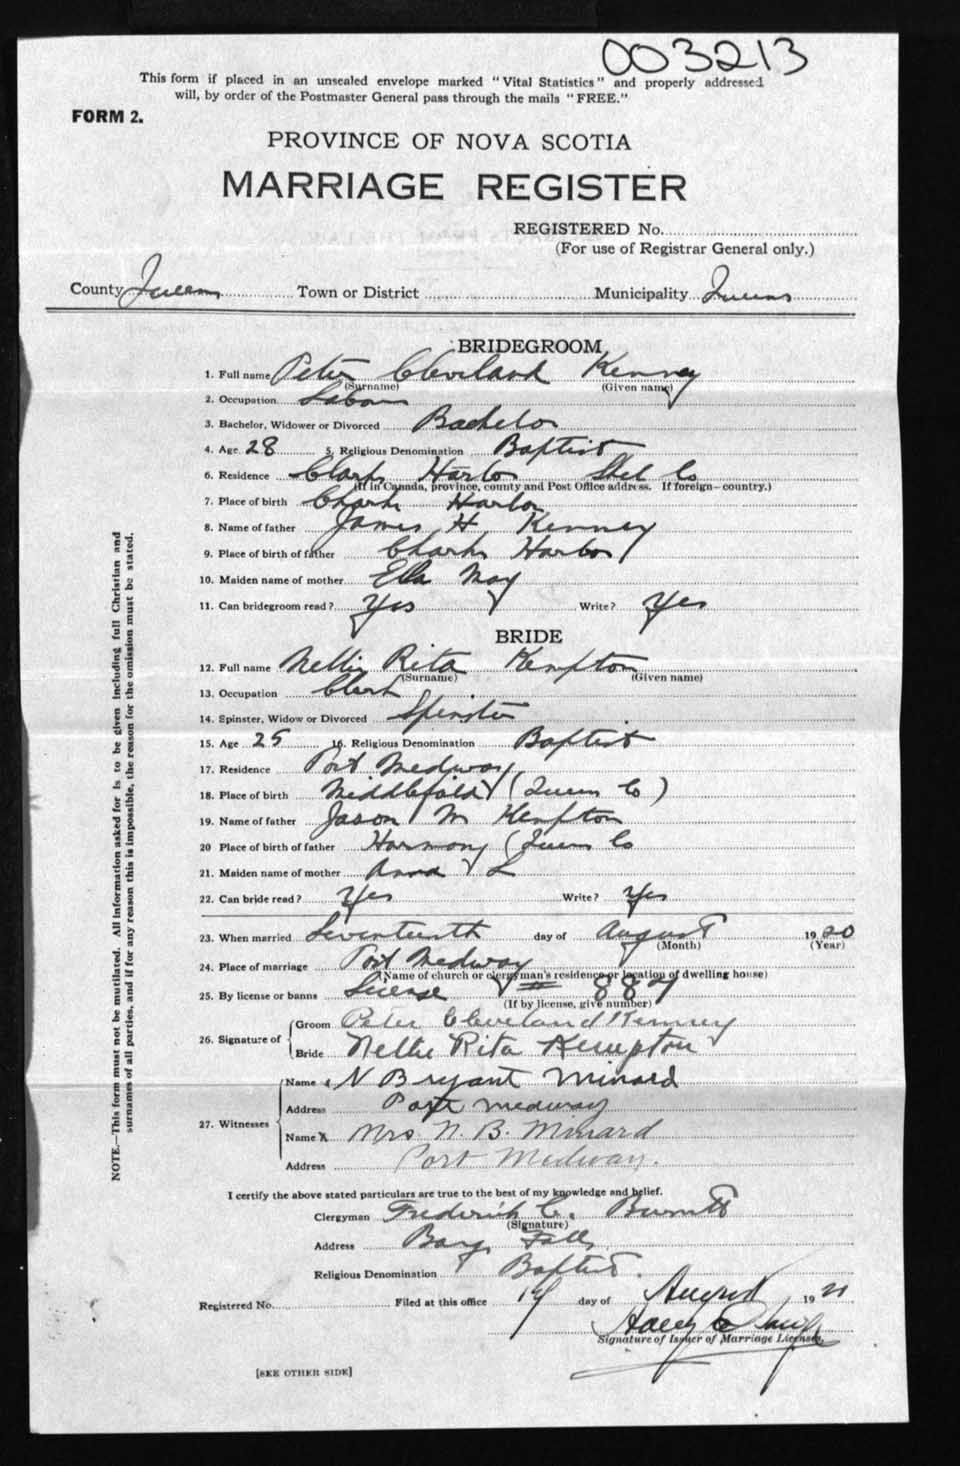 003213
This form if placed in an unsealed envelope marked "Vital Statistics" and properly addressed
will, by order of the Postmaster General pass through the mails "FREE."
FORM 2.
PROVINCE OF NOVA SCOTIA
MARRIAGE REGISTER
REGISTERED No.
(For use of Registrar General only.)
County Queens Town or District Municipality Queens
BRIDEGROOM
1. Full name Peter Cleveland Kenney
(Surname) (Given name)
2. Occupation Labour
3. Bachelor, Widower or Divorced Bachelor
4. Age 28 5. Religious Denomination Baptist
6. Residence Clarks Harbor Shel Co
(If in Canada, province, county and Post Office address. If foreign—country.)
7. Place of birth Clarks Harbor
8. Name of father James H Kenney
9. Place of birth of father Clarks Harbor
10. Maiden name of mother Ella May
11. Can bridegroom read? Yes Write? Yes
BRIDE
12. Full name Nellie Rita Kempton
(Surname) (Given name)
13. Occupation Clerk
14. Spinster, Widow or Divorced Spinster
15. Age 25 16. Religious Denomination Baptist
17. Residence Port Medway
18. Place of birth Middlefield (Queens Co)
19. Name of father Jason M Kempton
20 Place of birth of father Harmony (Queens Co
21. Maiden name of mother Anna L
22. Can bride read? Yes Write? Yes
23. When married Seventeenth day of August 1920
(Month) (Year)
24. Place of marriage Port Medway
(Name of church or clergyman's residence or location of dwelling house)
25. By license or banns License #
(If by license, give number)
26. Signature of Groom Peter Cleveland Kenney
Bride Nellie Rita Kempton
27. Witnesses Name N Bryant Minard
Address Port Medway
Name Mrs N. B. Minard
Address Port Medway.
I certify the above stated particulars are true to the best of my knowledge and belief.
Clergyman Frederick C.
(Signature)
Address Falls
Religious Denomination Baptist.
Registered No. Filed at this office day of August 19
Signature of Issuer of Marriage Licenses.
[SEE OTHER SIDE]
NOTE.—This form must not be mutilated. All information asked for is to be given including full Christian and
surnames of all parties, and if for any reason this is impossible, the reason for the omission must be stated.